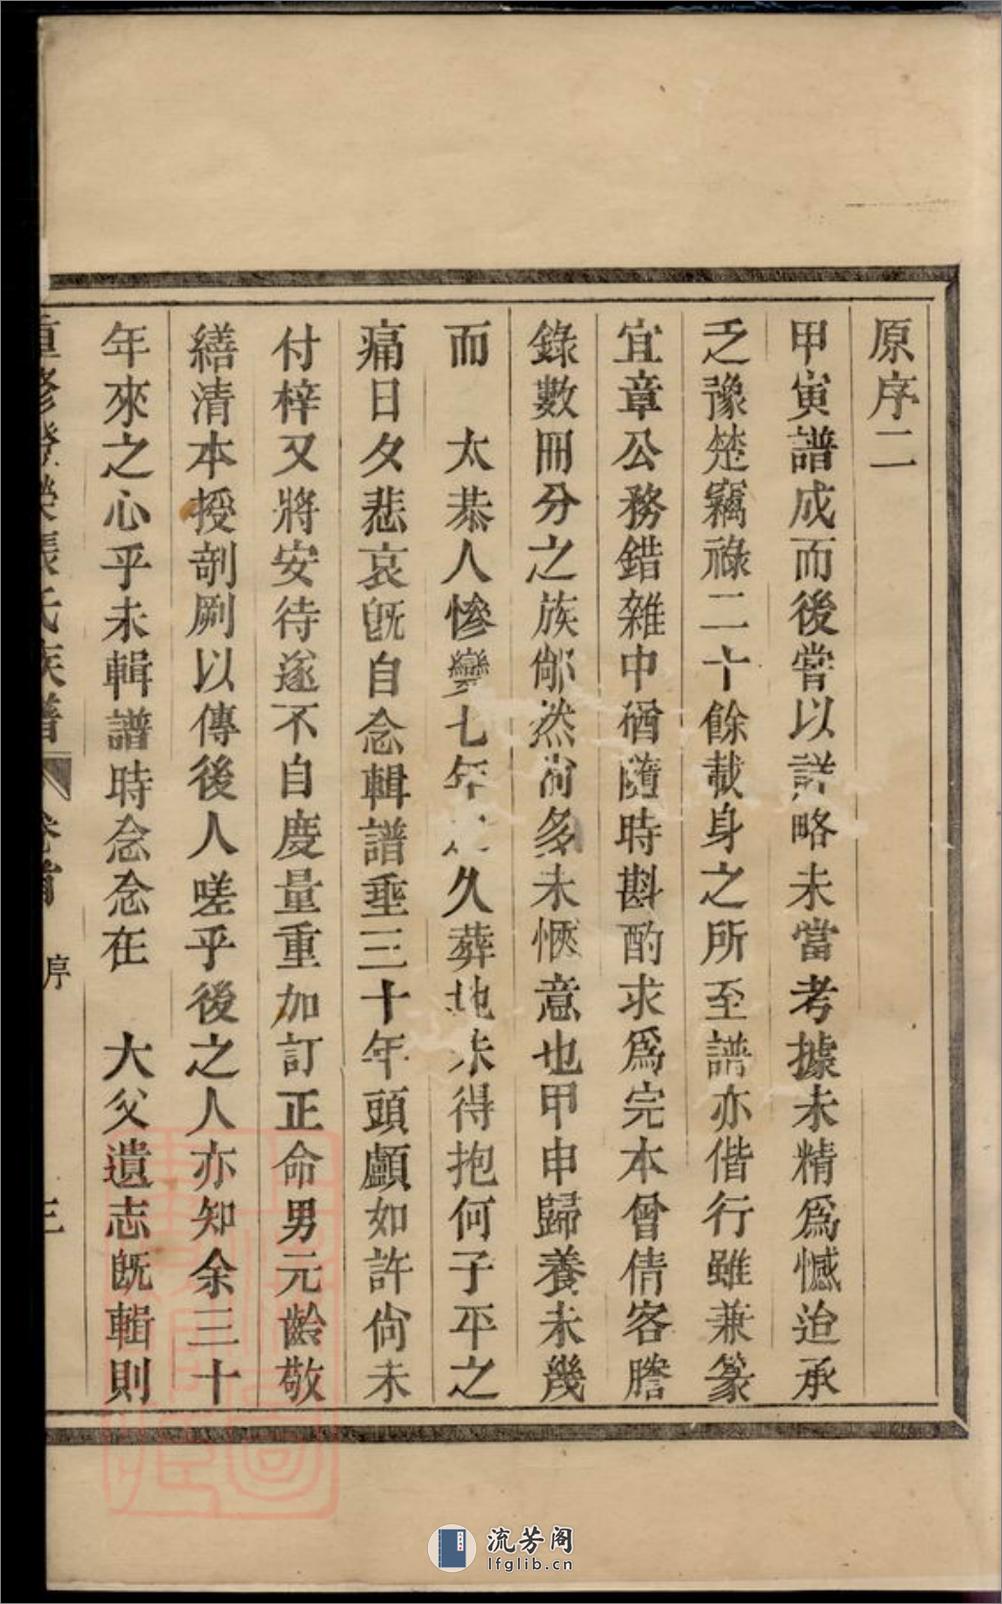 原序二
甲寅譜成而後嘗以詳略未當考據未精爲憾迨承
乏豫楚竊祿二十餘載身之所至譜亦偕行雖兼篆
宜章公務錯雜中猶隨時斟酌求爲完本曾倩客謄
錄數冊分之族鄰然尚多未愜意也甲申歸養未幾
而　太恭人慘變七年之久葬地未得抱何子平之
痛日夕悲哀旣自念輯譜垂三十年頭顱如許尙未
付梓又將安待遂不自度量重加訂正命男元齡敬
繕清本授剞劂以傳後人嗟乎後之人亦知余三十
年來之心乎未輯譜時念念在　大父遺志旣輯則
重修登榮張氏族譜　卷首　序　三
流芳阁
lfglib.cn